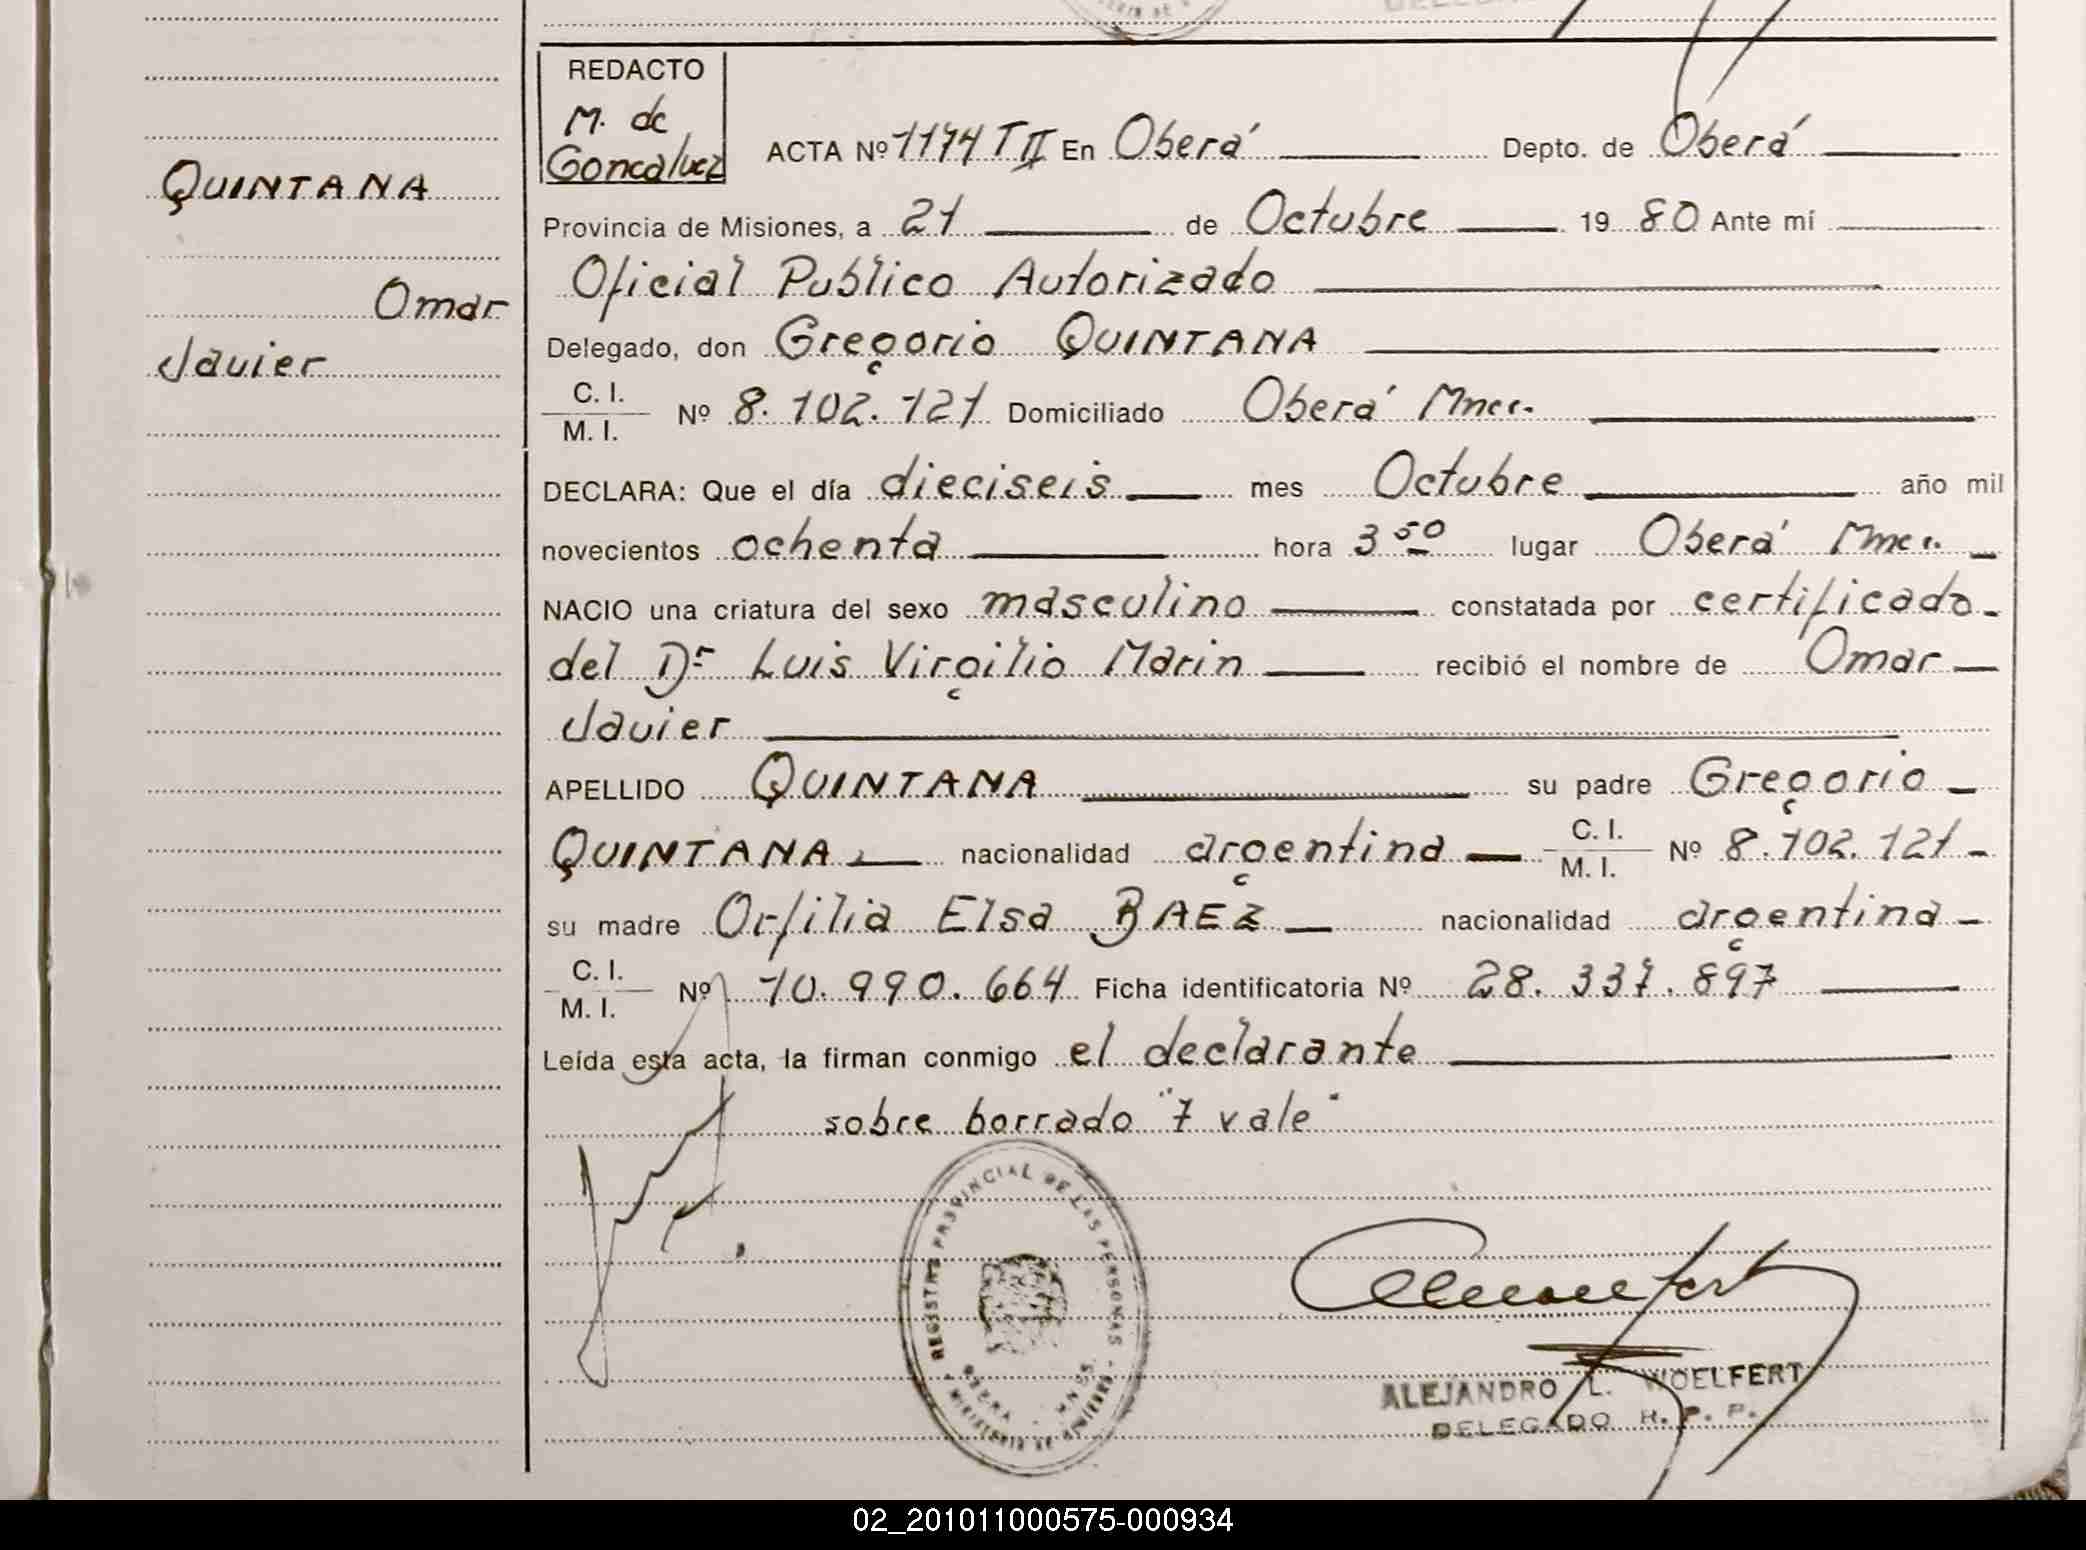 REDACTO
M. de
Goncalvez
ACTA Nº 1174 T II En Oberá Depto. de Oberá
QUINTANA
Provincia de Misiones, a 21 de Octubre 1980 Ante mí
Oficial Publico Autorizado
Omar
Delegado, don Gregorio QUINTANA
Javier
C. I.
M. I. Nº 8.102.121 Domiciliado Oberá Mnes.
DECLARA: Que el día dieciseis mes Octubre año mil
novecientos ochenta hora 3 50 lugar Oberá Mnes.
NACIO una criatura del sexo masculino constatada por certificado
del Dr Luis Virgilio Marin recibió el nombre de Omar
Javier
APELLIDO QUINTANA su padre Gregorio
QUINTANA nacionalidad argentina C. I. M. I. Nº 8.102.121
su madre Orfilia Elsa BAEZ nacionalidad argentina
C. I.
M. I. Nº 10.990.664 Ficha identificatoria Nº 28.337.897
Leída esta acta, la firman conmigo el declarante
sobre borrado "7 vale"
REGISTRO PROVINCIAL DE LAS PERSONAS
MINISTERIO DE GOBIERNO
OBERA - MNES.
ALEJANDRO L. WOELFERT
DELEGADO R. P. P.
02_201011000575-000934